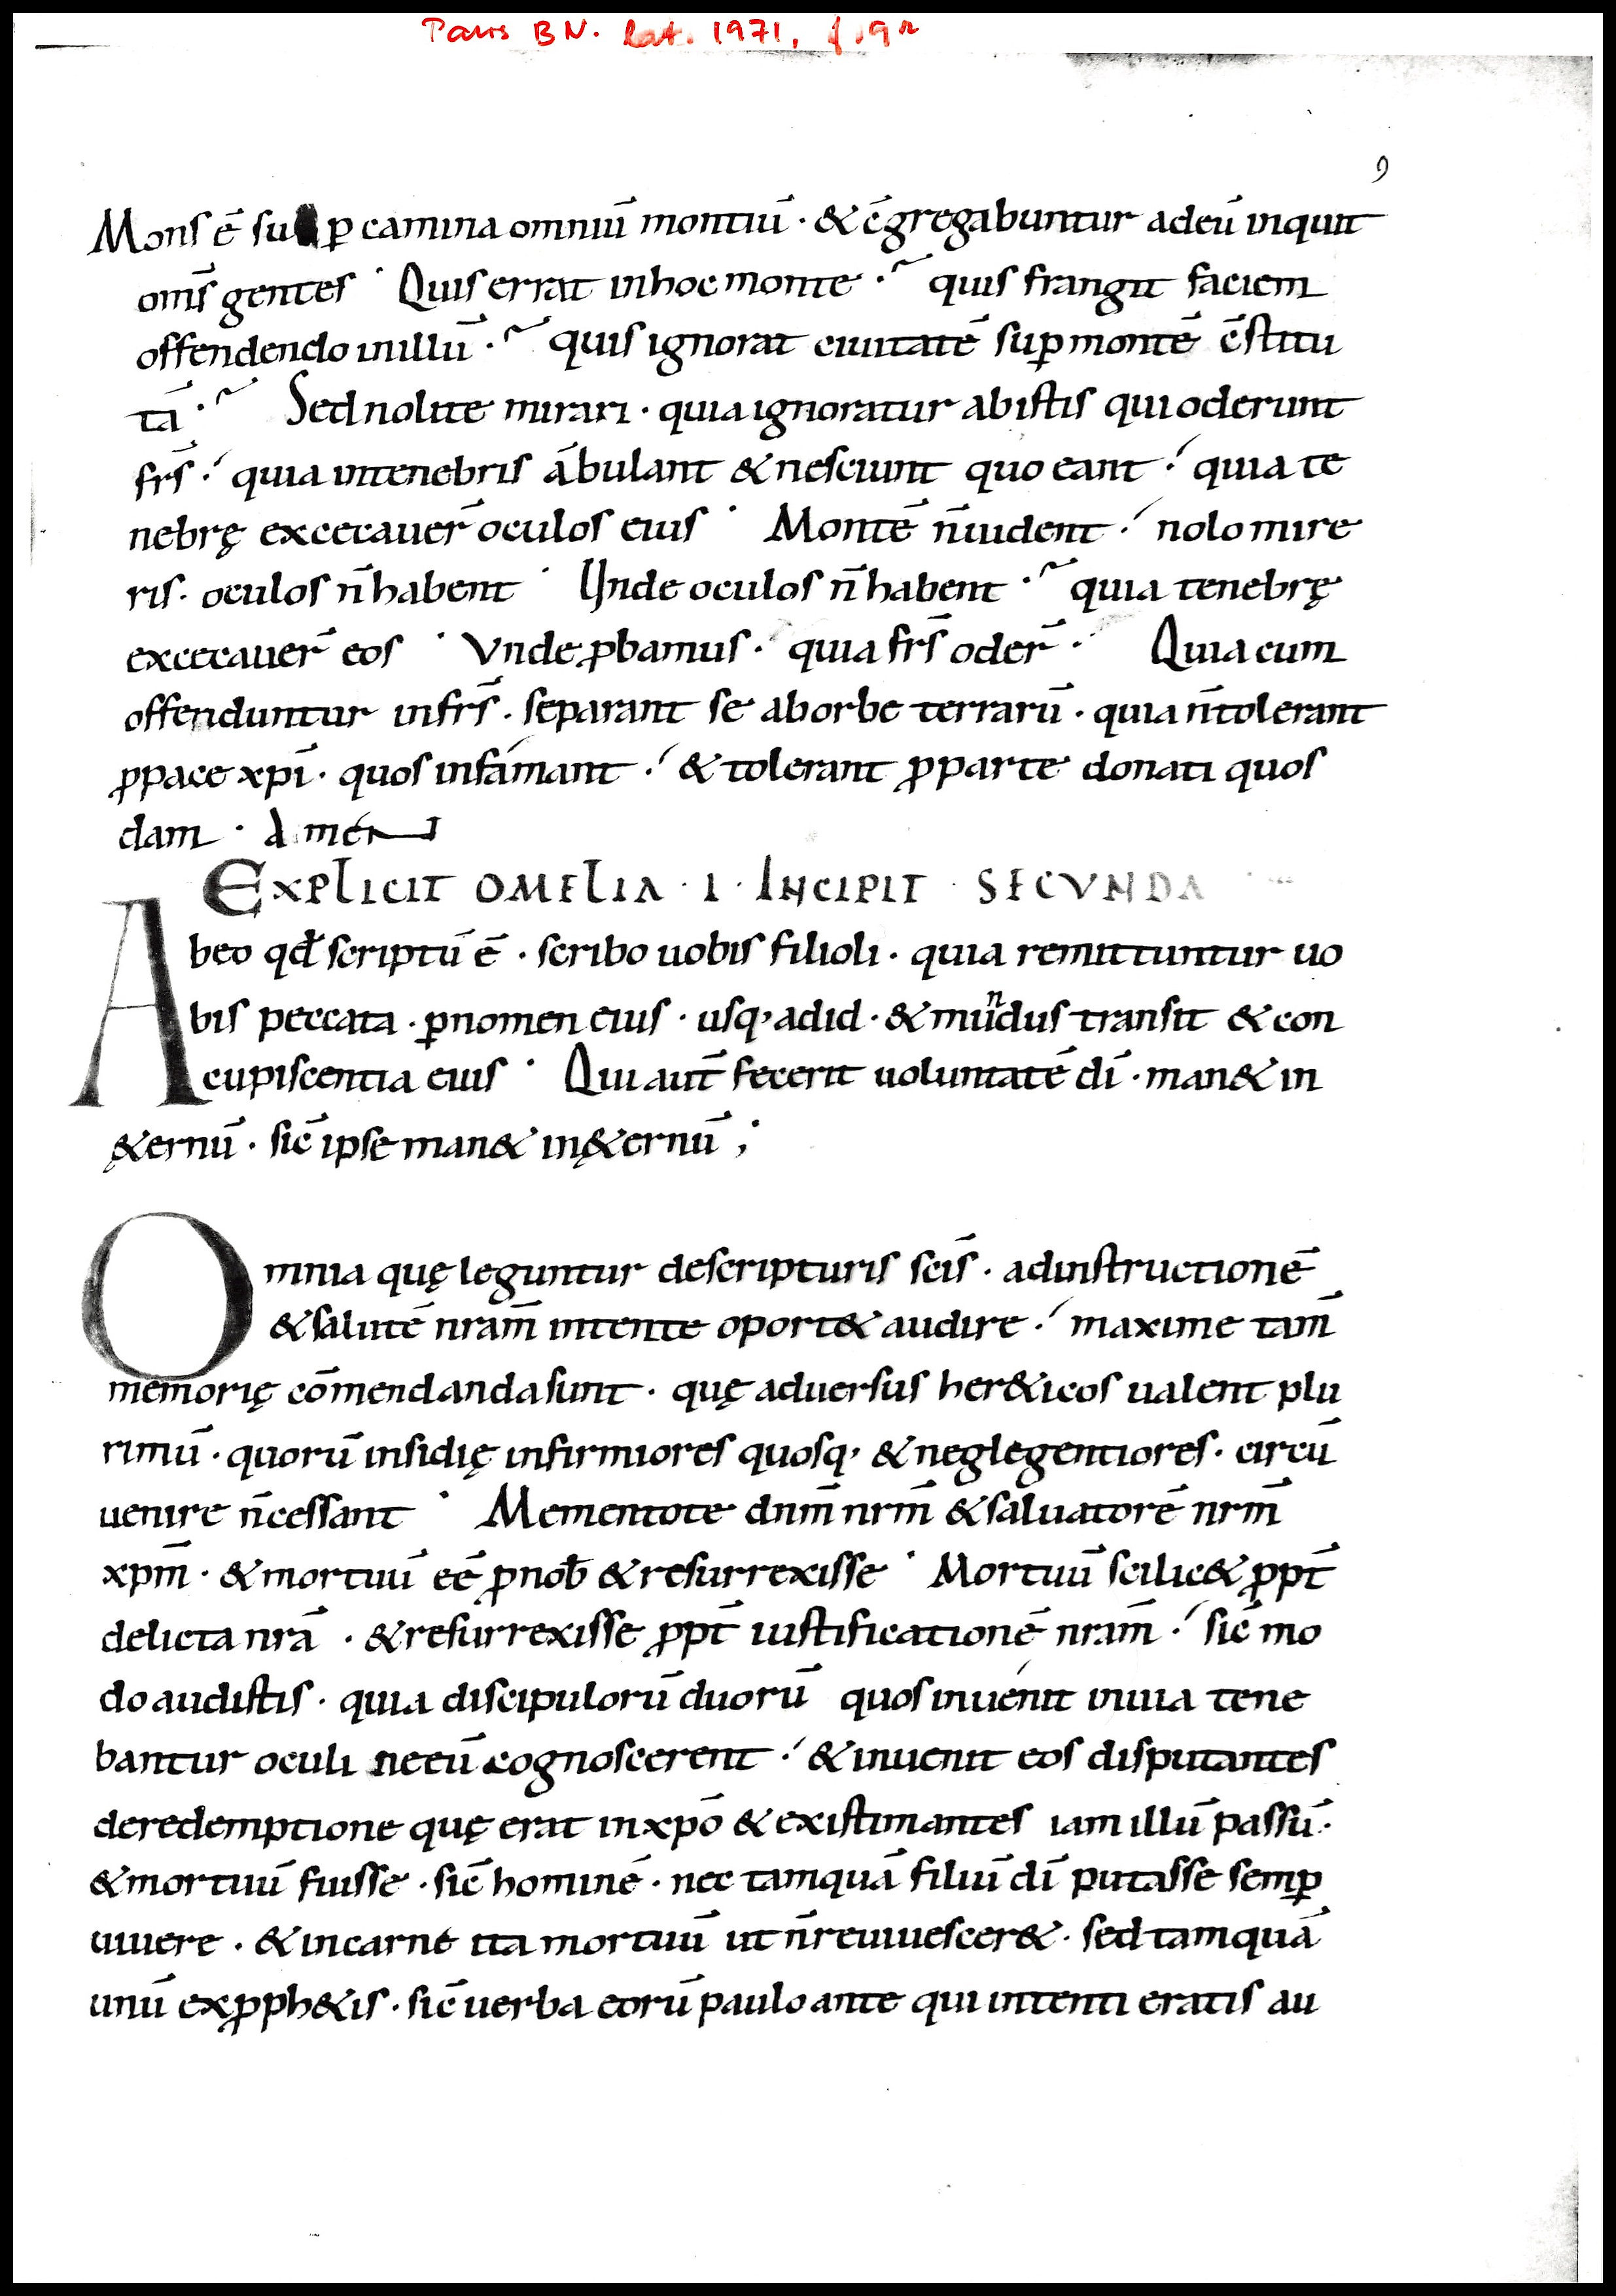 Paris BN. Lat. 1971, f. 9r
9
Mons ē sup̱ camina omniū montiū · & c̄gregabuntur adeū inquit
om̄s gentes · Quis errat inhoc monte ·~ quis frangit faciem
offendendo inillū ·~ quis ignorat ciuitatē sup̱ montē c̄stitu
tā ·~ Sed nolite mirari · quia ignoratur ab istis qui oderunt
fr̄s ·́ quia intenebris ābulant & nesciunt quo eant ·́ quia te
nebrę excecauer̄ oculos eius · Montē n̄ uident ·́ nolo mire
ris · oculos n̄ habent · Unde oculos n̄ habent ·~ quia tenebrę
excecauer̄ eos · Vnde ꝓbamus · quia fr̄s oder̄ · Quia cum
offenduntur infr̄s · separant se ab orbe terrarū · quia n̄ tolerant
ꝓpace xp̄i · quos infámant ·́ & tolerant ꝓparte donati quos
dam · Amen
EXPLICIT OMELIA · I · INCIPIT SECVNDA
Abeo qđ scriptū ē · scribo uobis filioli · quia remittuntur uo
bis peccata · ꝑ nomen eius · usq; adid · & muⁿdus transit & con
cupiscentia eius · Qui aut̄ fecerit uoluntatē dī · man& in
ę&ernū · sic̄ ipse man& inę&ernū ;
Omnia quę leguntur descripturis sc̄is · adinstructionē
& salutē nr̄am intente oport& audire ·́ maxime tam̄
memorię cōmendanda sunt · quę aduersus her&icos ualent plu
rimū · quorū insidię infirmiores quosq; & neglegentiores · circū
uenire n̄ cessant · Mementote dnm̄ nrm̄ & saluatorē nrm̄
xpm̄ · & mortuū eē ꝓ nob̄ & resurrexisse · Mortuū scilic& ꝓpt̄
delicta nr̄a · & resurrexisse ꝓpt̄ iustificationē nr̄am ·́ sic̄ mo
do audistis · quia discipulorū duorū quos inuénit inuia tene
bantur oculi ne eū cognoscerent ·́ & inuenit eos disputantes
deredemptione quę erat inxp̄o & existimantes iam illū passū ·
& mortuū fuisse · sic̄ hominē · nec tamquā filiū dī putasse semp̱
uiuere · & incarne ita mortuū ut n̄ reuiuescer& · sed tamquā
unū exꝓph&is · sic̄ uerba eorū paulo ante qui intenti eratis au